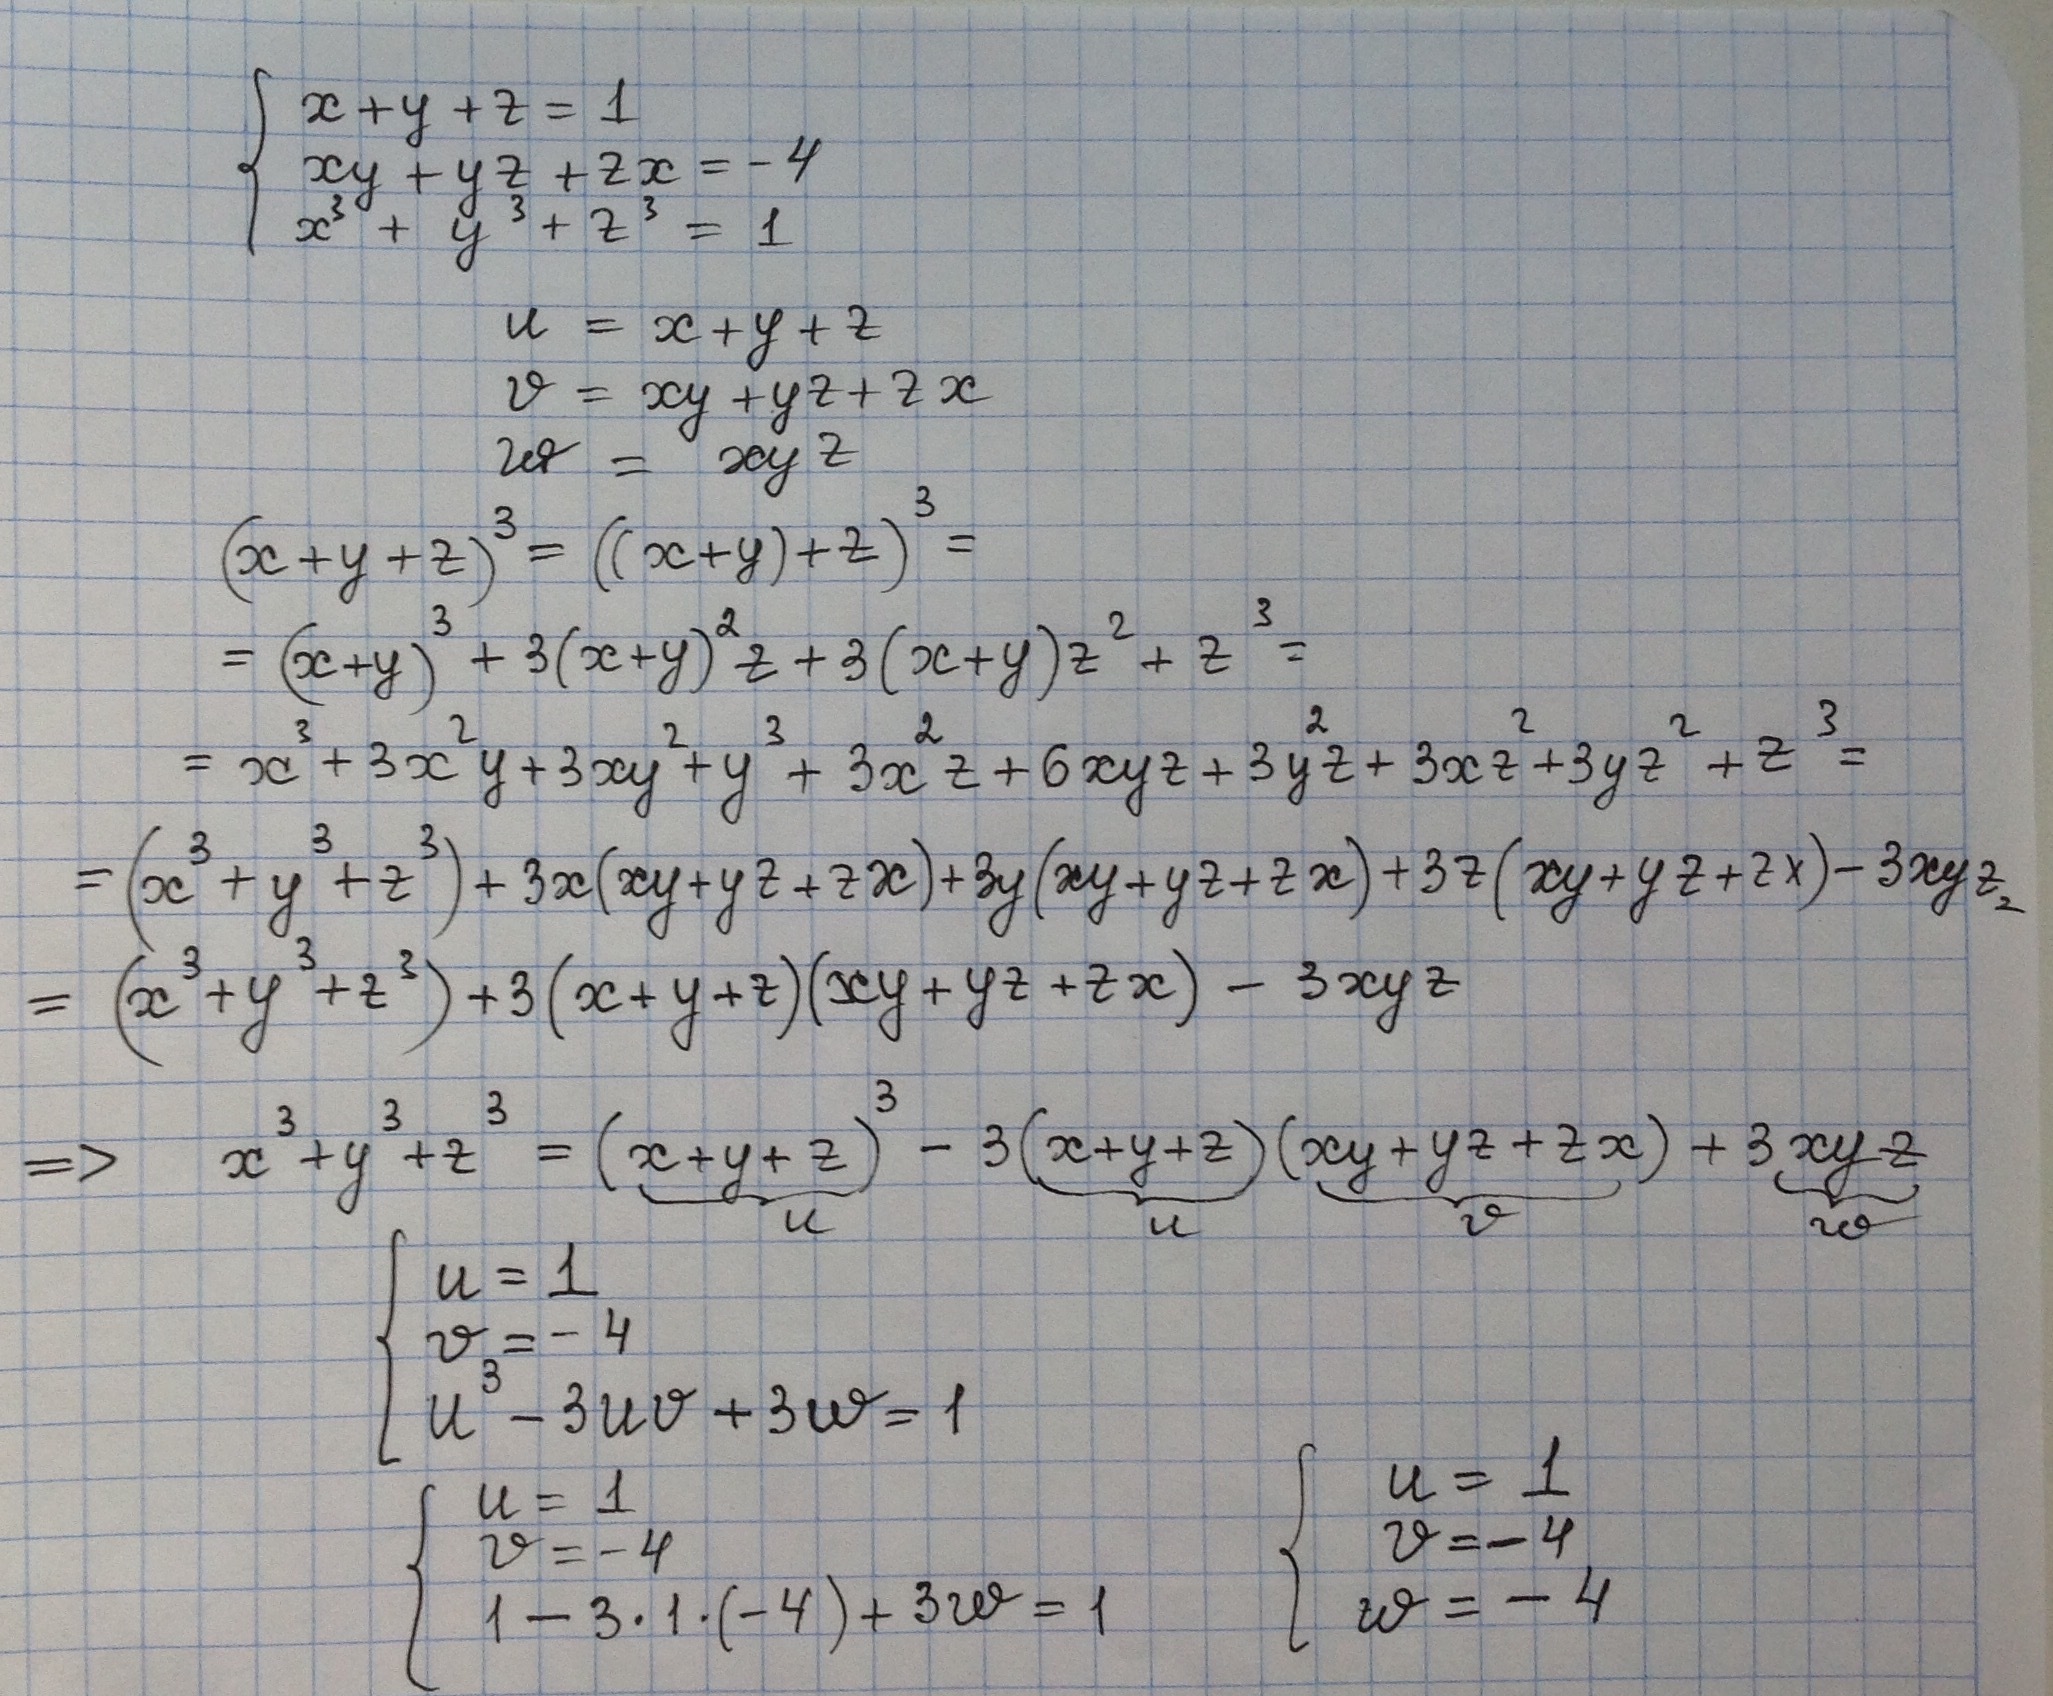 x + y + z = 1
xy + yz + zx = -4
x³ + y³ + z³ = 1
u = x + y + z
v = xy + yz + zx
w = xyz
(x + y + z)³ = ((x + y) + z)³ =
= (x+y)³ + 3(x+y)²z + 3(x+y)z² + z³ =
= x³ + 3x²y + 3xy² + y³ + 3x²z + 6xyz + 3y²z + 3xz² + 3yz² + z³ =
= (x³ + y³ + z³) + 3x(xy + yz + zx) + 3y(xy + yz + zx) + 3z(xy + yz + zx) - 3xyz =
= (x³ + y³ + z³) + 3(x + y + z)(xy + yz + zx) - 3xyz
=> x³ + y³ + z³ = (x + y + z)³ - 3(x + y + z)(xy + yz + zx) + 3xyz
u u v w
u = 1
v = -4
u³ - 3uv + 3w = 1
u = 1
v = -4
1 - 3·1·(-4) + 3w = 1
u = 1
v = -4
w = -4